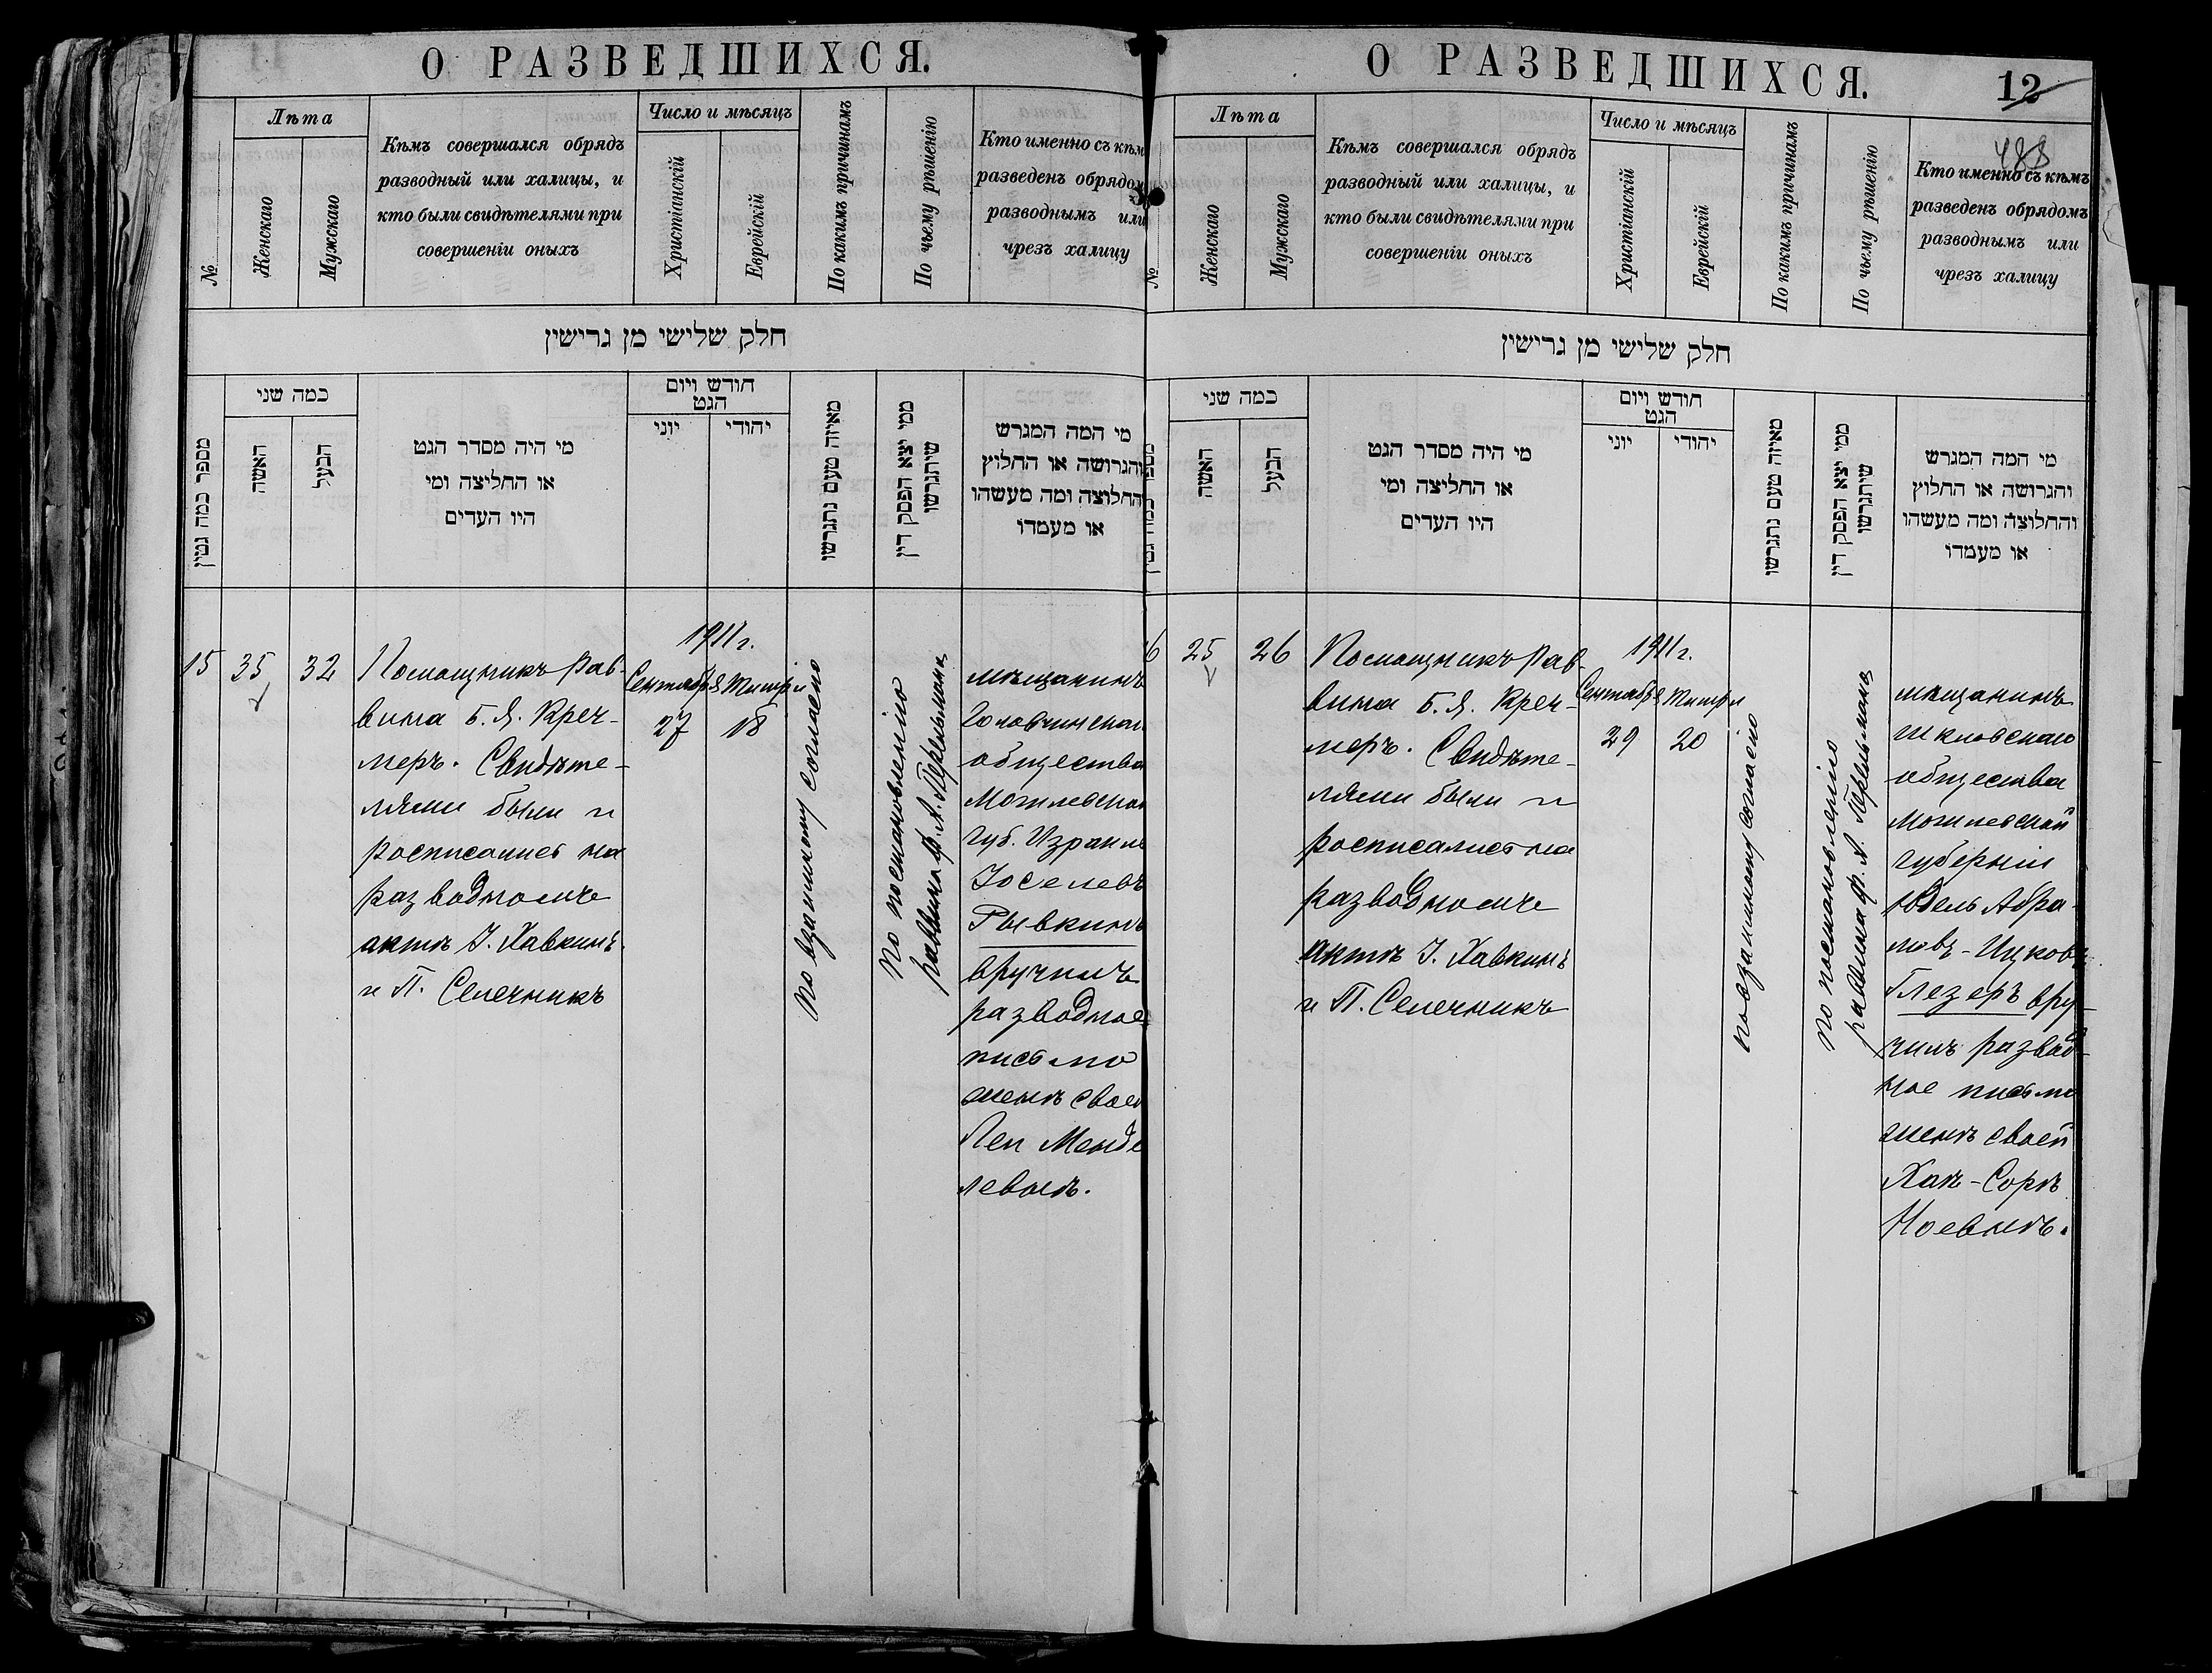 О РАЗВЕДШИХСЯ.
№
Лѣта
Женскаго
Мужскаго
Кѣмъ совершался обрядъ
разводный или халицы, и
кто были свидѣтелями при
совершеніи оныхъ
Число и мѣсяцъ
Христіанскій
Еврейскій
По какимъ причинамъ
По чьему рѣшенію
Кто именно съ кѣмъ
разведенъ обрядом
разводнымъ или
чрезъ халицу
חלק שלישי מן גרישין
מספר כמה גטין
כמה שני
האשה
הבעל
מי היה מסדר הגט
או החליצה ומי
היו העדים
חודש ויום
הגט
יוני
יהודי
מאיזה טעם נתגרשו
ממי יצא הפסק דין
שיתגרשו
מי המה המגרש
והגרושה או החלוץ
והחלוצה ומה מעשהו
או מעמדו
15
35
32
Помощникъ рав-
вина Б. Я. Креч-
меръ. Свидѣте-
лями были и
росписались на
разводномъ
актѣ І. Хавкинъ
и П. Селечникъ
1911 г.
Сентября Тишри
27 18
По взаимному согласію
По постановленію
раввина Ф. А. Перельмана
мѣщанинъ
Головчинскаг
общества
Могилевской
губ. Израиль
Іоселевъ
Рывкинъ
вручилъ
разводное
письмо
женѣ своей
Леи Менде
левнѣ.
О РАЗВЕДШИХСЯ.
12
488
№
Лѣта
Женскаго
Мужскаго
Кѣмъ совершался обрядъ
разводный или халицы, и
кто были свидѣтелями при
совершеніи оныхъ
Число и мѣсяцъ
Христіанскій
Еврейскій
По какимъ причинамъ
По чьему рѣшенію
Кто именно съ кѣмъ
разведенъ обрядомъ
разводнымъ или
чрезъ халицу
חלק שלישי מן גרישין
כמה שני
האשה
הבעל
מי היה מסדר הגט
או החליצה ומי
היו העדים
חודש ויום
הגט
יוני
יהודי
מאיזה טעם נתגרשו
ממי יצא הפסק דין
שיתגרשו
מי המה המגרש
והגרושה או החלוץ
והחלוצה ומה מעשהו
או מעמדו
6
25
26
Помощникъ Рав-
вина Б. Я. Креч-
меръ. Свидѣте-
лями были и
росписались на
разводномъ
актѣ І. Хавкинъ
и П. Селечникъ
1911 г.
Сентября Тишри
29 20
По взаимному согласію
По постановленію
раввина Ф. А. Перельмана
мѣщанинъ
шкловскаго
общества
Могилевской
губерніи
Юдель Абра-
мовъ-Ицковъ
Глезеръ вру-
чилъ развод-
ное письмо
женѣ своей
Хаѣ-Сорѣ
Ноевнѣ.